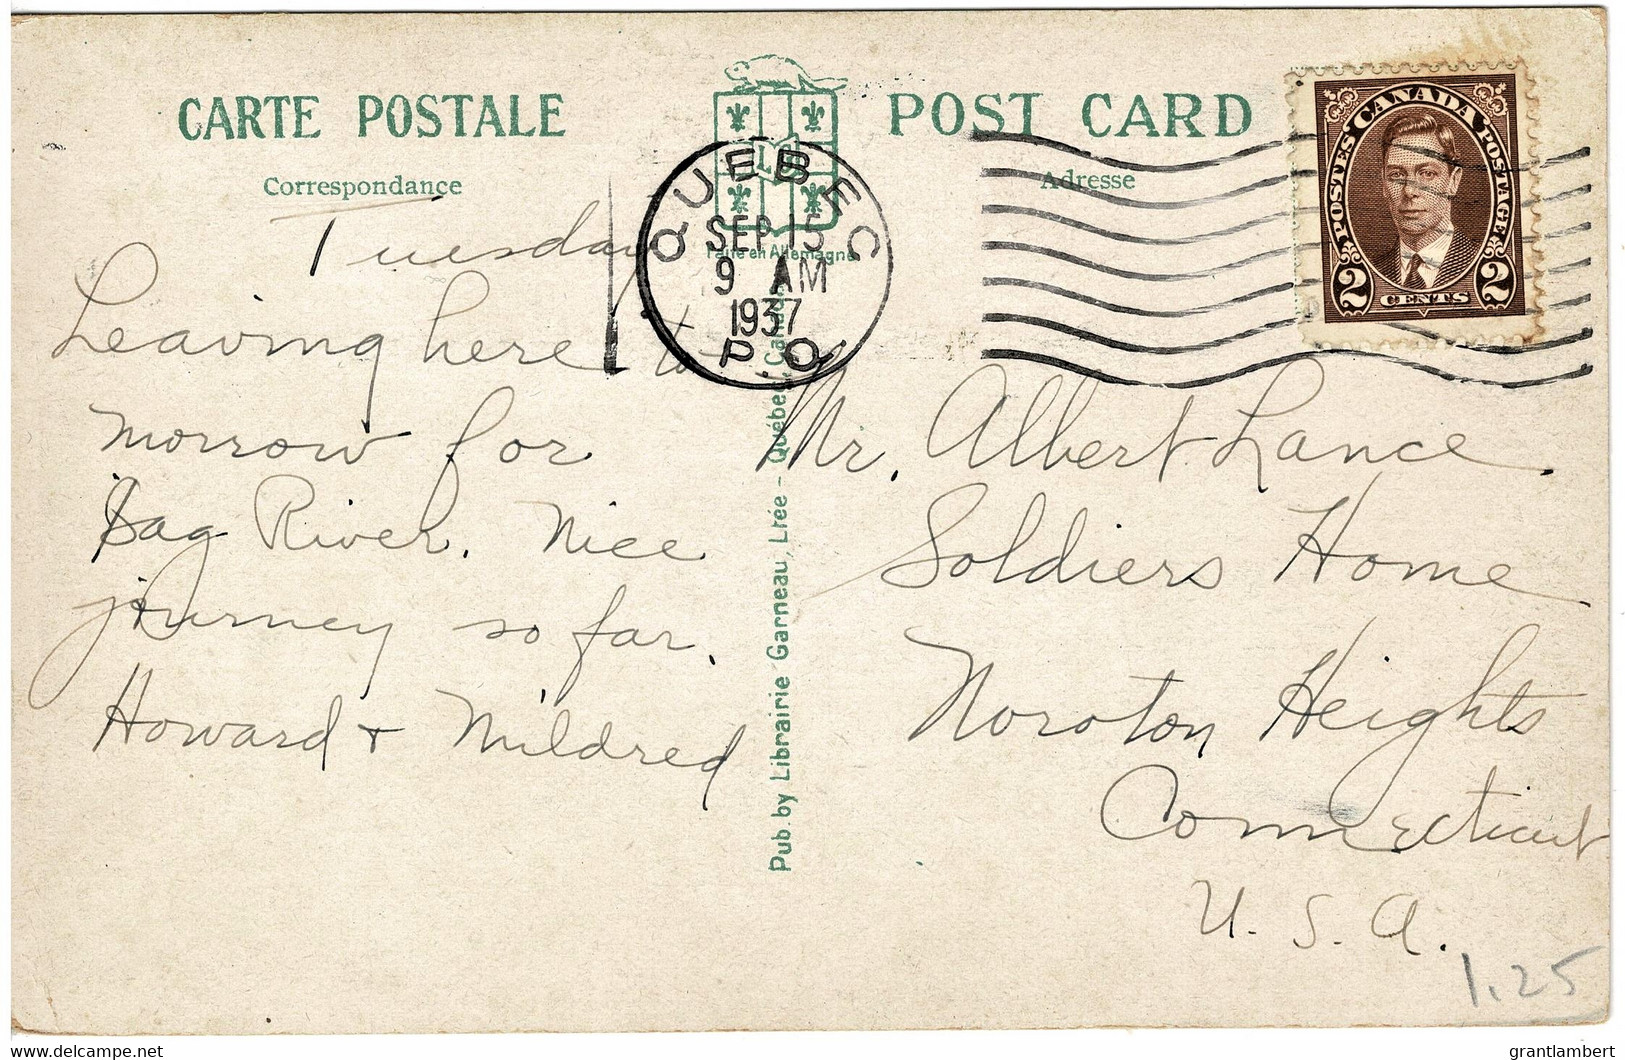 CARTE POSTALE
POST CARD
Correspondance
Adresse
L G
Faite en Allemagne
QUEBEC
SEP 15
9 AM
1937
P.Q.
POSTES CANADA POSTAGE
2 CENTS 2
Tuesday
Leaving here to
morrow for
Sag River. Nice
journey so far.
Howard + Mildred
Pub. by Librairie Garneau, Ltée - Québec, Canada
Mr. Albert Lance
Soldiers Home
Noroton Heights
Connecticut
U. S. A.
1.25
www.delcampe.net
grantlambert